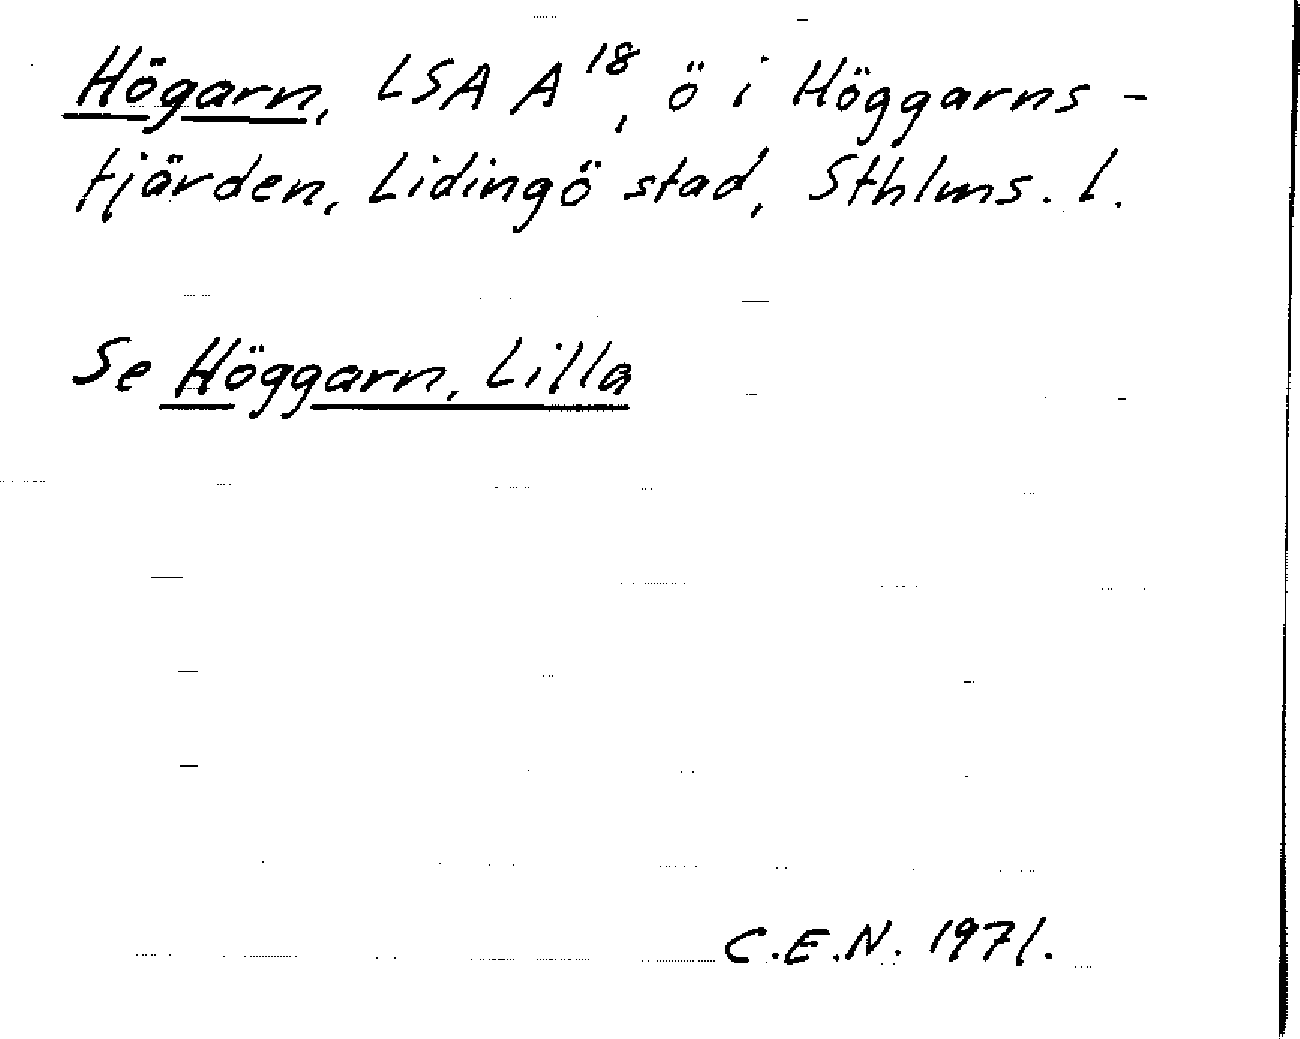 Högarn, LSA A¹⁸, ö i Höggarns-
fjärden, Lidingö stad, Sthlms. l.
Se Höggarn, Lilla
C.E.N. 1971.